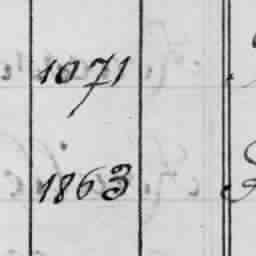 1071
1863